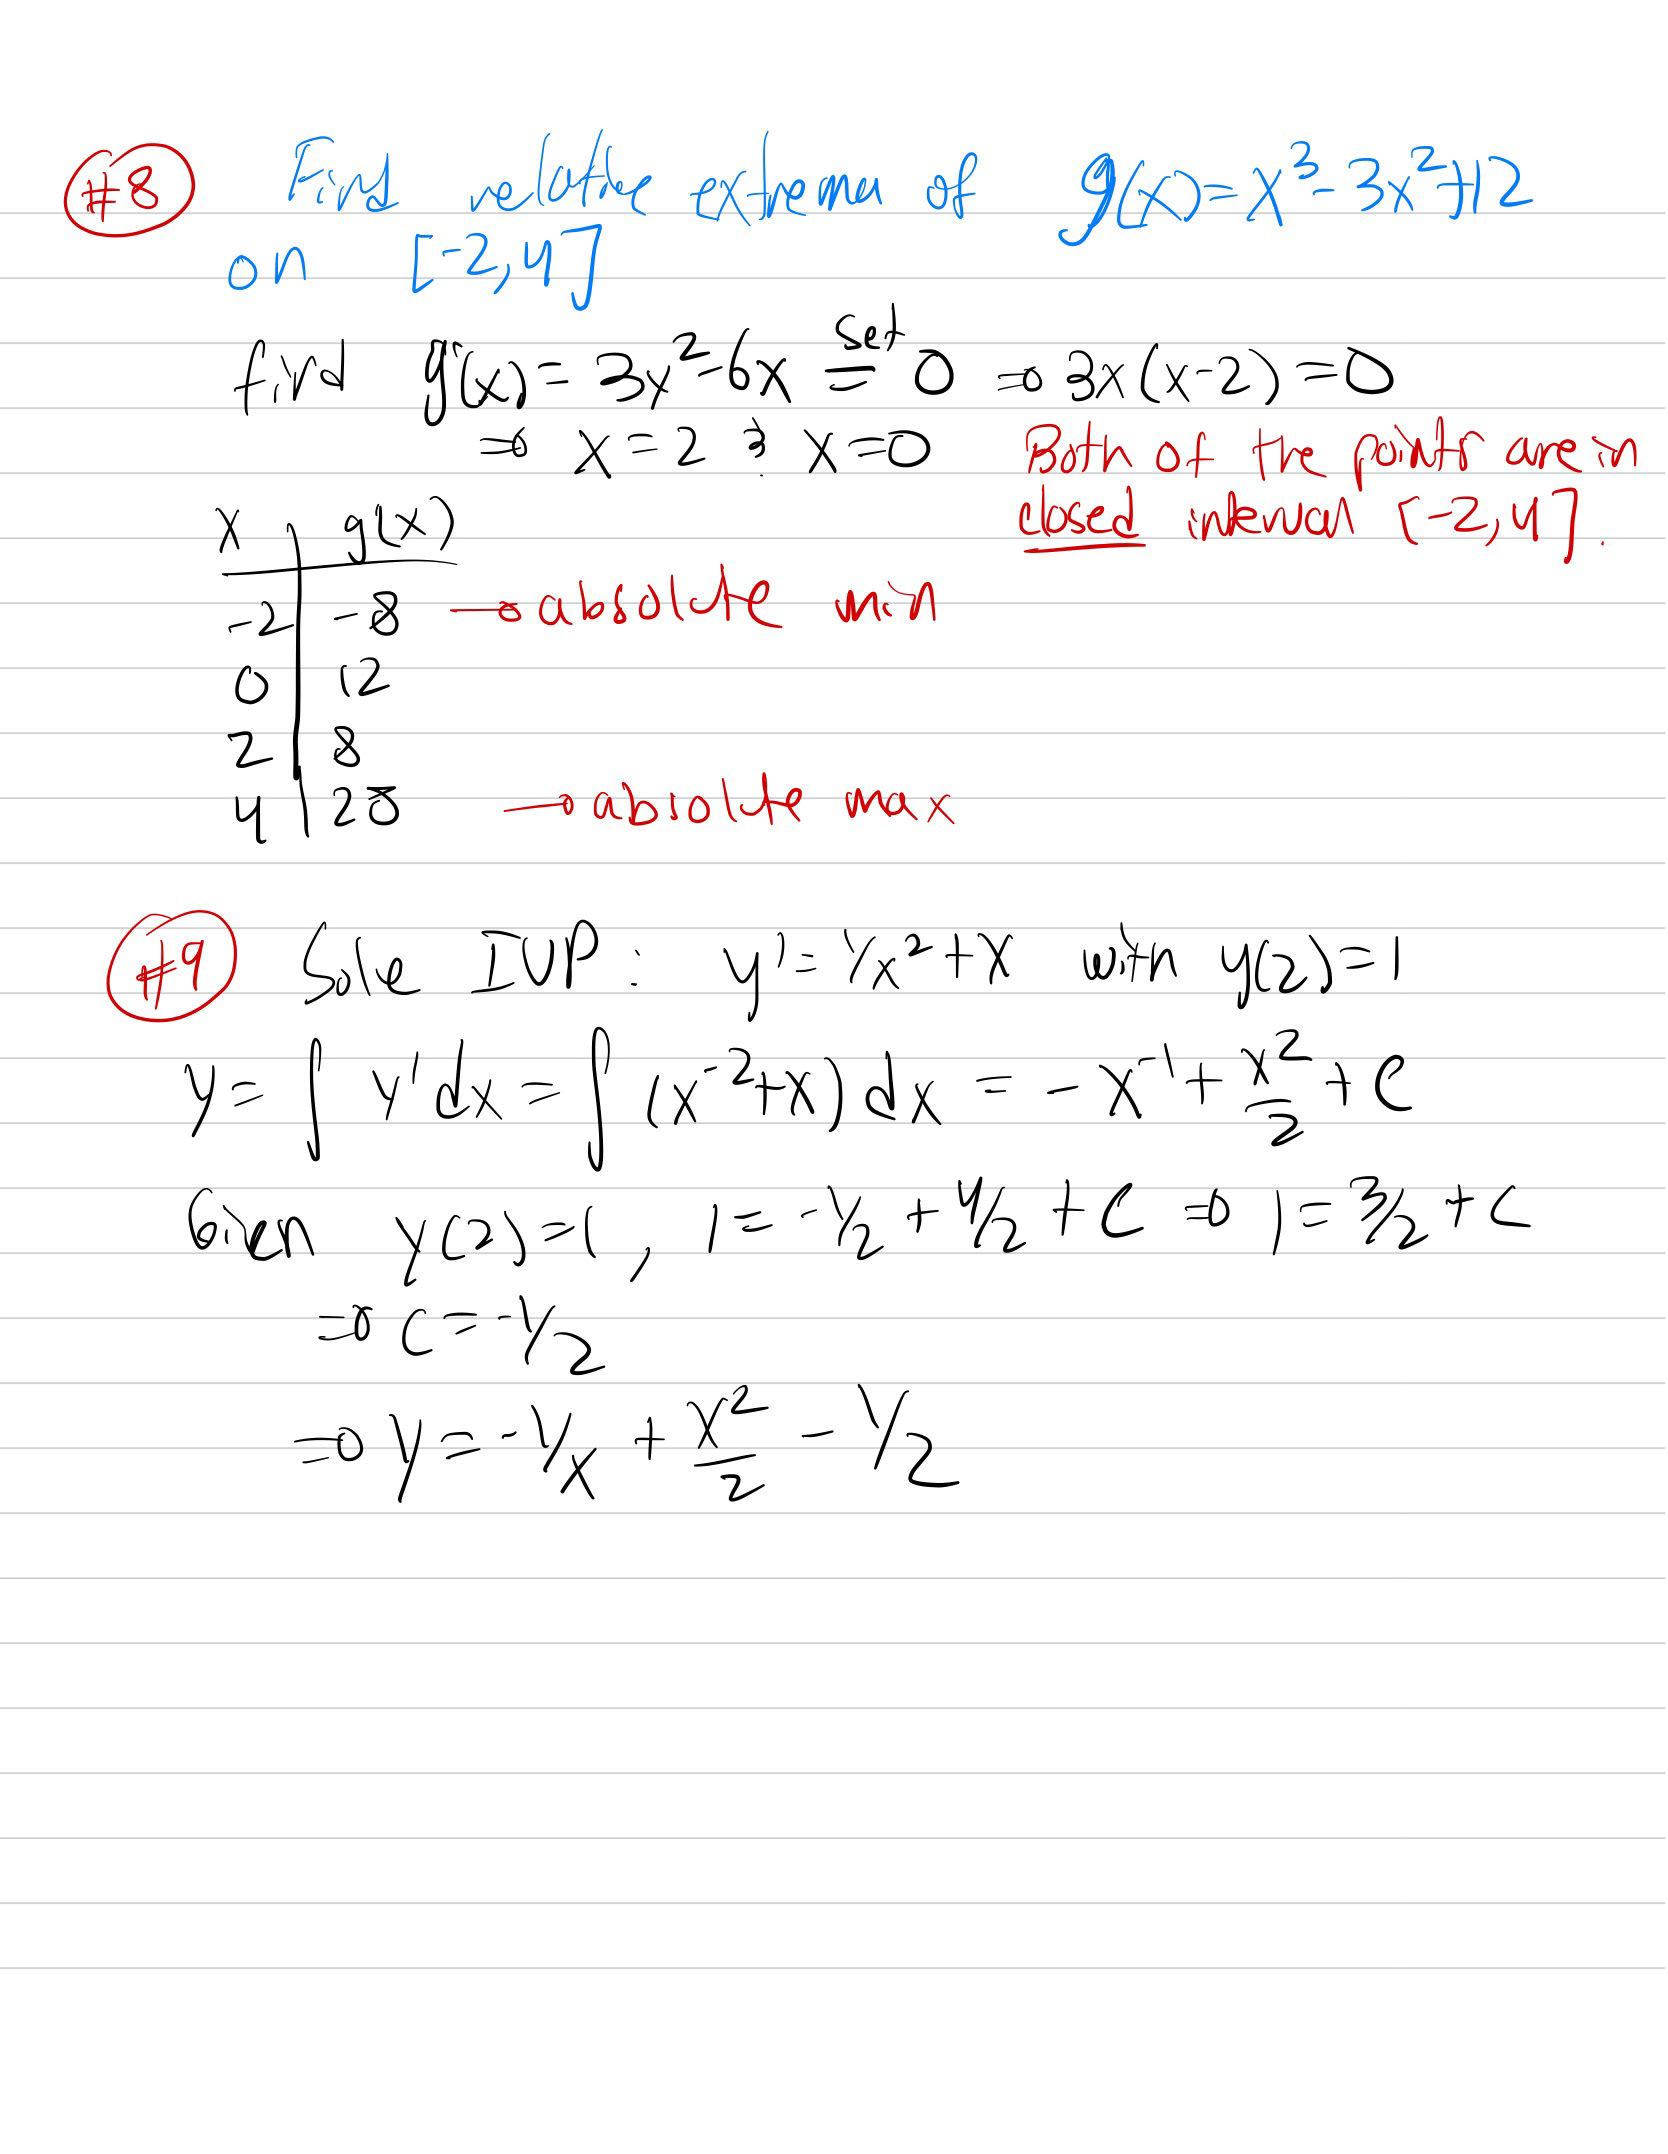 #8 Find relative extrema of g(x)=x³-3x²+12
on [-2,4]
find g'(x)=3x²-6x set= 0 ⇒ 3x(x-2)=0
⇒ x=2 & x=0 Both of the points are in
closed interval [-2,4].
x g(x)
-2 -8 → absolute min
0 12
2 8
4 28 → absolute max
#9 Solve IVP: y'=1/x²+x with y(2)=1
y=∫y'dx=∫(x⁻²+x)dx = -x⁻¹+x²/2+C
Given y(2)=1, 1=-1/2+4/2+C ⇒ 1=3/2+C
⇒ C=-1/2
⇒ y=-1/x+x²/2-1/2